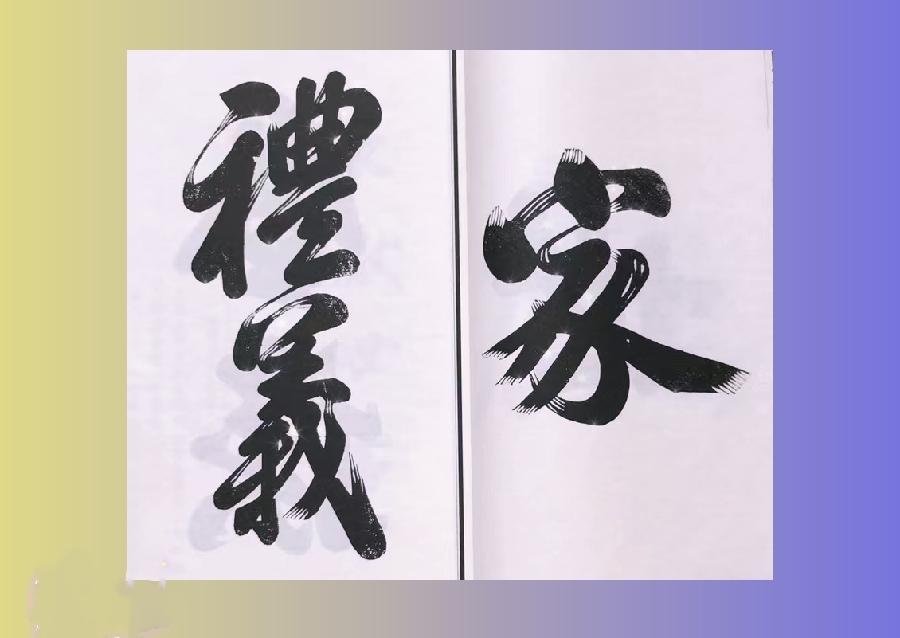 家
禮義